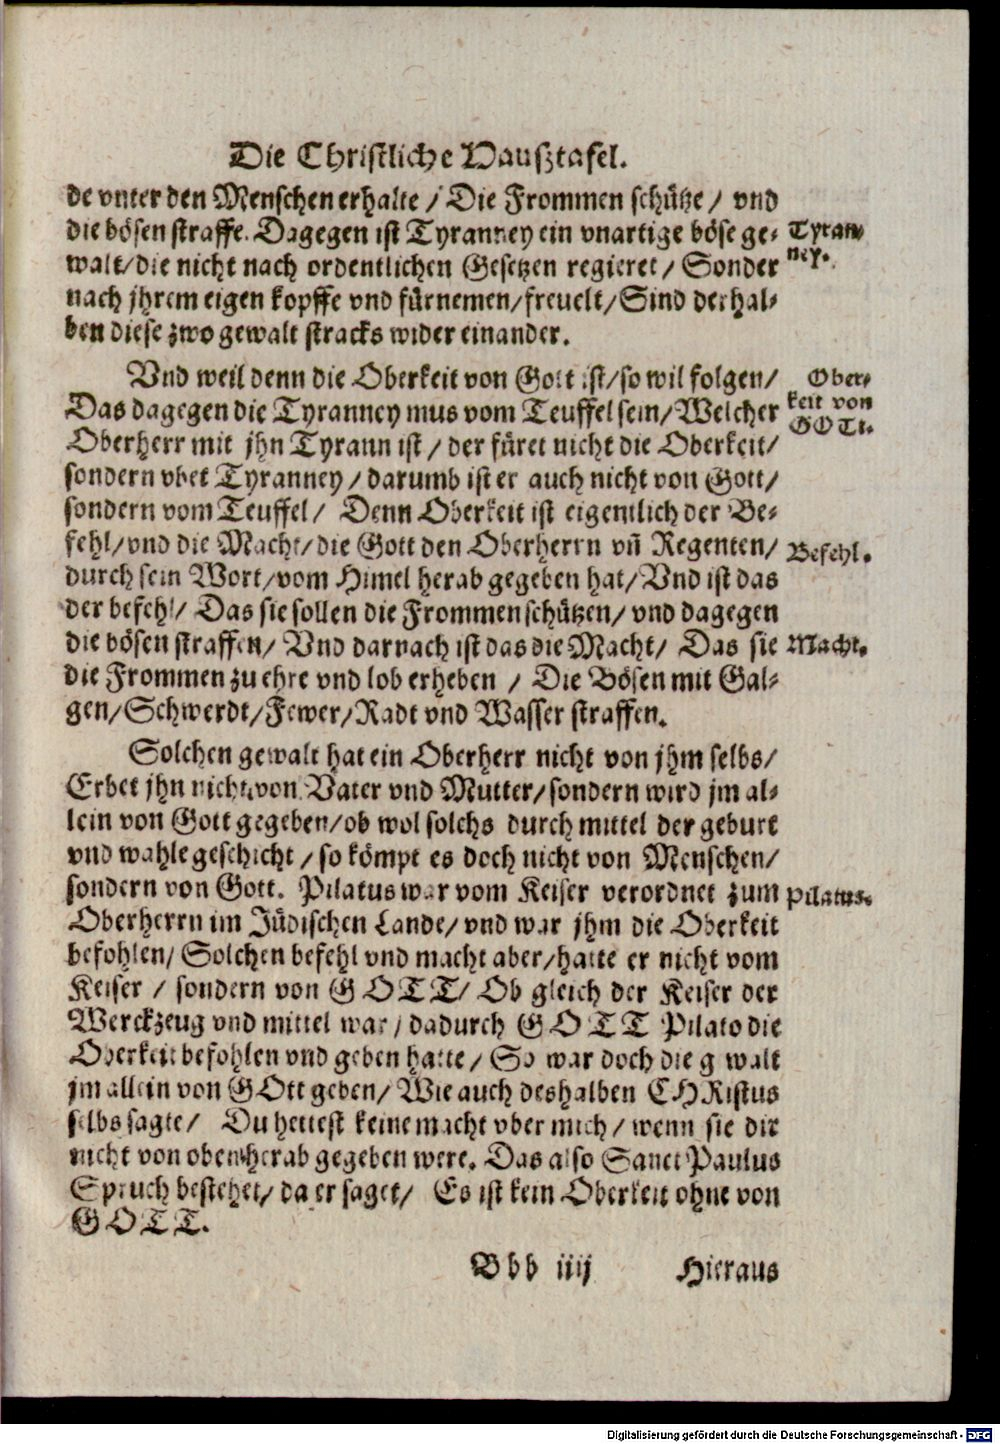 Die Christliche Haußtafel.
de vnter den Menschen erhalte / Die Frommen schütze / vnd
die bösen straffe. Dagegen ist Tyranney ein vnartige böse ge-
walt / die nicht nach ordentlichen Gesetzen regieret / Sonder
nach jhrem eigen kopffe vnd fürnemen / freuelt / Sind derhal-
ben diese zwo gewalt stracks wider einander.
Tyran-
ney.
Vnd weil denn die Oberkeit von Gott ist / so wil folgen /
Das dagegen die Tyranney mus vom Teuffel sein / Welcher
Oberherr mit jhn Tyrann ist / der füret nicht die Oberkeit /
sondern vbet Tyranney / darumb ist er auch nicht von Gott /
sondern vom Teuffel / Denn Oberkeit ist eigentlich der Be-
fehl / vnd die Macht / die Gott den Oberherrn vñ Regenten /
durch sein Wort / vom Himel herab gegeben hat / Vnd ist das
der befehl / Das sie sollen die Frommen schützen / vnd dagegen
die bösen straffen / Vnd darnach ist das die Macht / Das sie
die Frommen zu ehre vnd lob erheben / Die Bösen mit Gal-
gen / Schwerdt / Fewer / Radt vnd Wasser straffen.
Ober-
keit von
GOTT.
Befehl.
Macht.
Solchen gewalt hat ein Oberherr nicht von jhm selbs /
Erbet jhn nicht von Vater vnd Mutter / sondern wird jm al-
lein von Gott gegeben / ob wol solchs durch mittel der geburt
vnd wahle geschicht / so kömpt es doch nicht von Menschen /
sondern von Gott. Pilatus war vom Keiser verordnet zum
Oberherrn im Jüdischen Lande / vnd war jhm die Oberkeit
befohlen / Solchen befehl vnd macht aber / hatte er nicht vom
Keiser / sondern von GOTT / Ob gleich der Keiser der
Werckzeug vnd mittel war / dadurch GOTT Pilato die
Oberkeit befohlen vnd geben hatte / So war doch die gewalt
jm allein von GOtt geben / Wie auch deshalben CHRistus
selbs sagte / Du hettest keine macht vber mich / wenn sie dir
nicht von oben herab gegeben were. Das also Sanct Paulus
Spruch bestehet / da er saget / Es ist kein Oberkeit ohne von
GOTT.
Pilatus.
Bbb iiij Hieraus
Digitalisierung gefördert durch die Deutsche Forschungsgemeinschaft - DFG